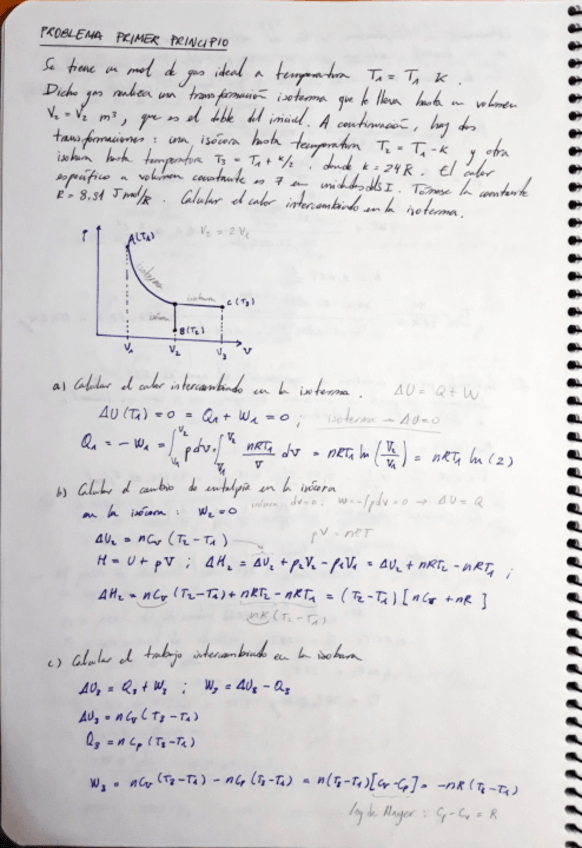 PROBLEMA PRIMER PRINCIPIO
Se tiene un mol de gas ideal a temperatura T₁ = T₁ K.
Dicho gas realiza una transformación isoterma que le lleva hasta un volumen
V₂ = V₂ m³, que es el doble del inicial. A continuación, hay dos
transformaciones: una isócora hasta temperatura T₂ = T₁ - K y otra
isobara hasta temperatura T₃ = T₁ + K/2, donde K = 24R. El calor
específico a volumen constante es 7 en unidades del S I. Tómese la constante
R = 8,31 J mol/K. Calcular el calor intercambiado en la isoterma.
P
A(T₁)
V₂ = 2V₁
isoterma
isobara
C(T₃)
isócora
B(T₂)
V₁ V₂ V₃ V
a) Calcular el calor intercambiado en la isoterma. ΔU = Q + W
ΔU(T₁) = 0 = Q₁ + W₁ = 0; isoterma → ΔU=0
Q₁ = -W₁ = ∫V₁V₂ pdv = ∫V₁V₂ nRT₁/V dv = nRT₁ ln(V₂/V₁) = nRT₁ ln(2)
b) Calcular el cambio de entalpía en la isócora
en la isócora: W₂=0 isócora: dv=0; W=-∫pdv=0 → ΔU=Q
ΔU₂ = nCv (T₂-T₁) pV = nRT
H = U + pV ; ΔH₂ = ΔU₂ + p₂V₂ - p₁V₁ = ΔU₂ + nRT₂ - nRT₁ ;
ΔH₂ = nCv (T₂-T₁) + nRT₂ - nRT₁ = (T₂-T₁)[nCv + nR]
nR(T₂-T₁)
c) Calcular el trabajo intercambiado en la isobara
ΔU₃ = Q₃ + W₃ ; W₃ = ΔU₃ - Q₃
ΔU₃ = nCv (T₃-T₁)
Q₃ = nCp (T₃-T₁)
W₃ = nCv (T₃-T₁) - nCp (T₃-T₁) = n(T₃-T₁)[Cv-Cp] = -nR(T₃-T₁)
ley de Mayer: Cp-Cv = R